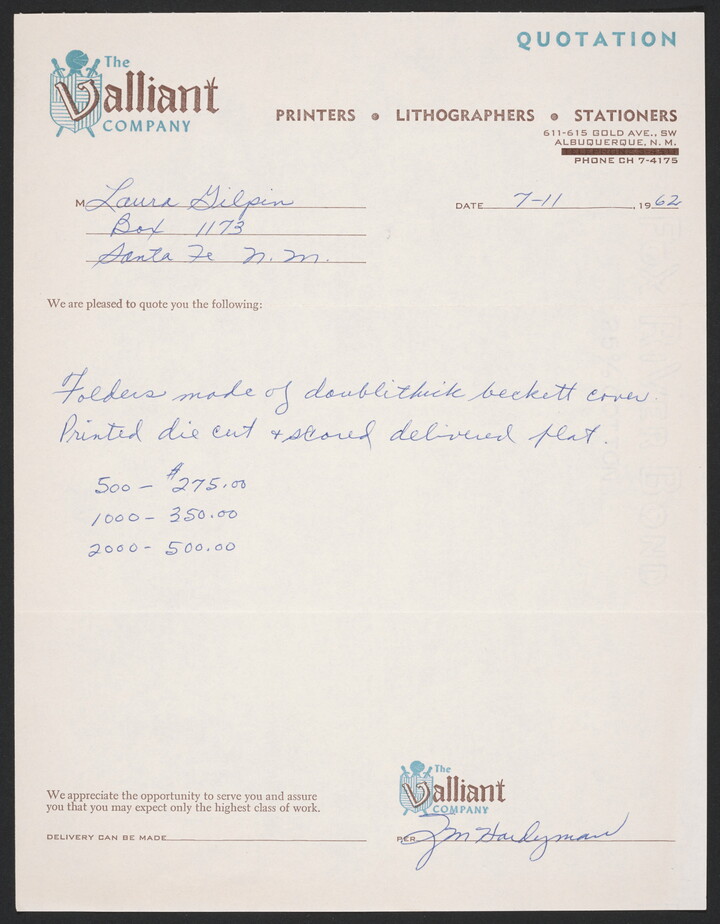 QUOTATION
The
Valliant
COMPANY
PRINTERS • LITHOGRAPHERS • STATIONERS
611-615 GOLD AVE., SW
ALBUQUERQUE, N. M.
PHONE CH 7-4175
M Laura Gilpin
DATE 7-11, 1962
Box 1173
Santa Fe N. M.
We are pleased to quote you the following:
Folders made of doublithick beckett cover.
Printed die cut + scored delivered flat.
500 - $275.00
1000 - 350.00
2000 - 500.00
We appreciate the opportunity to serve you and assure
you that you may expect only the highest class of work.
The
Valliant
COMPANY
DELIVERY CAN BE MADE
PER Hardyman